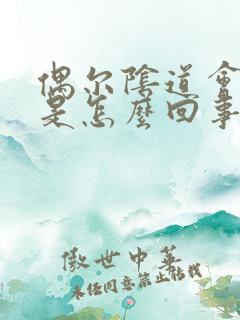 偶尔陰道會
是怎麼回事
傲世中華
未经同意禁止转载